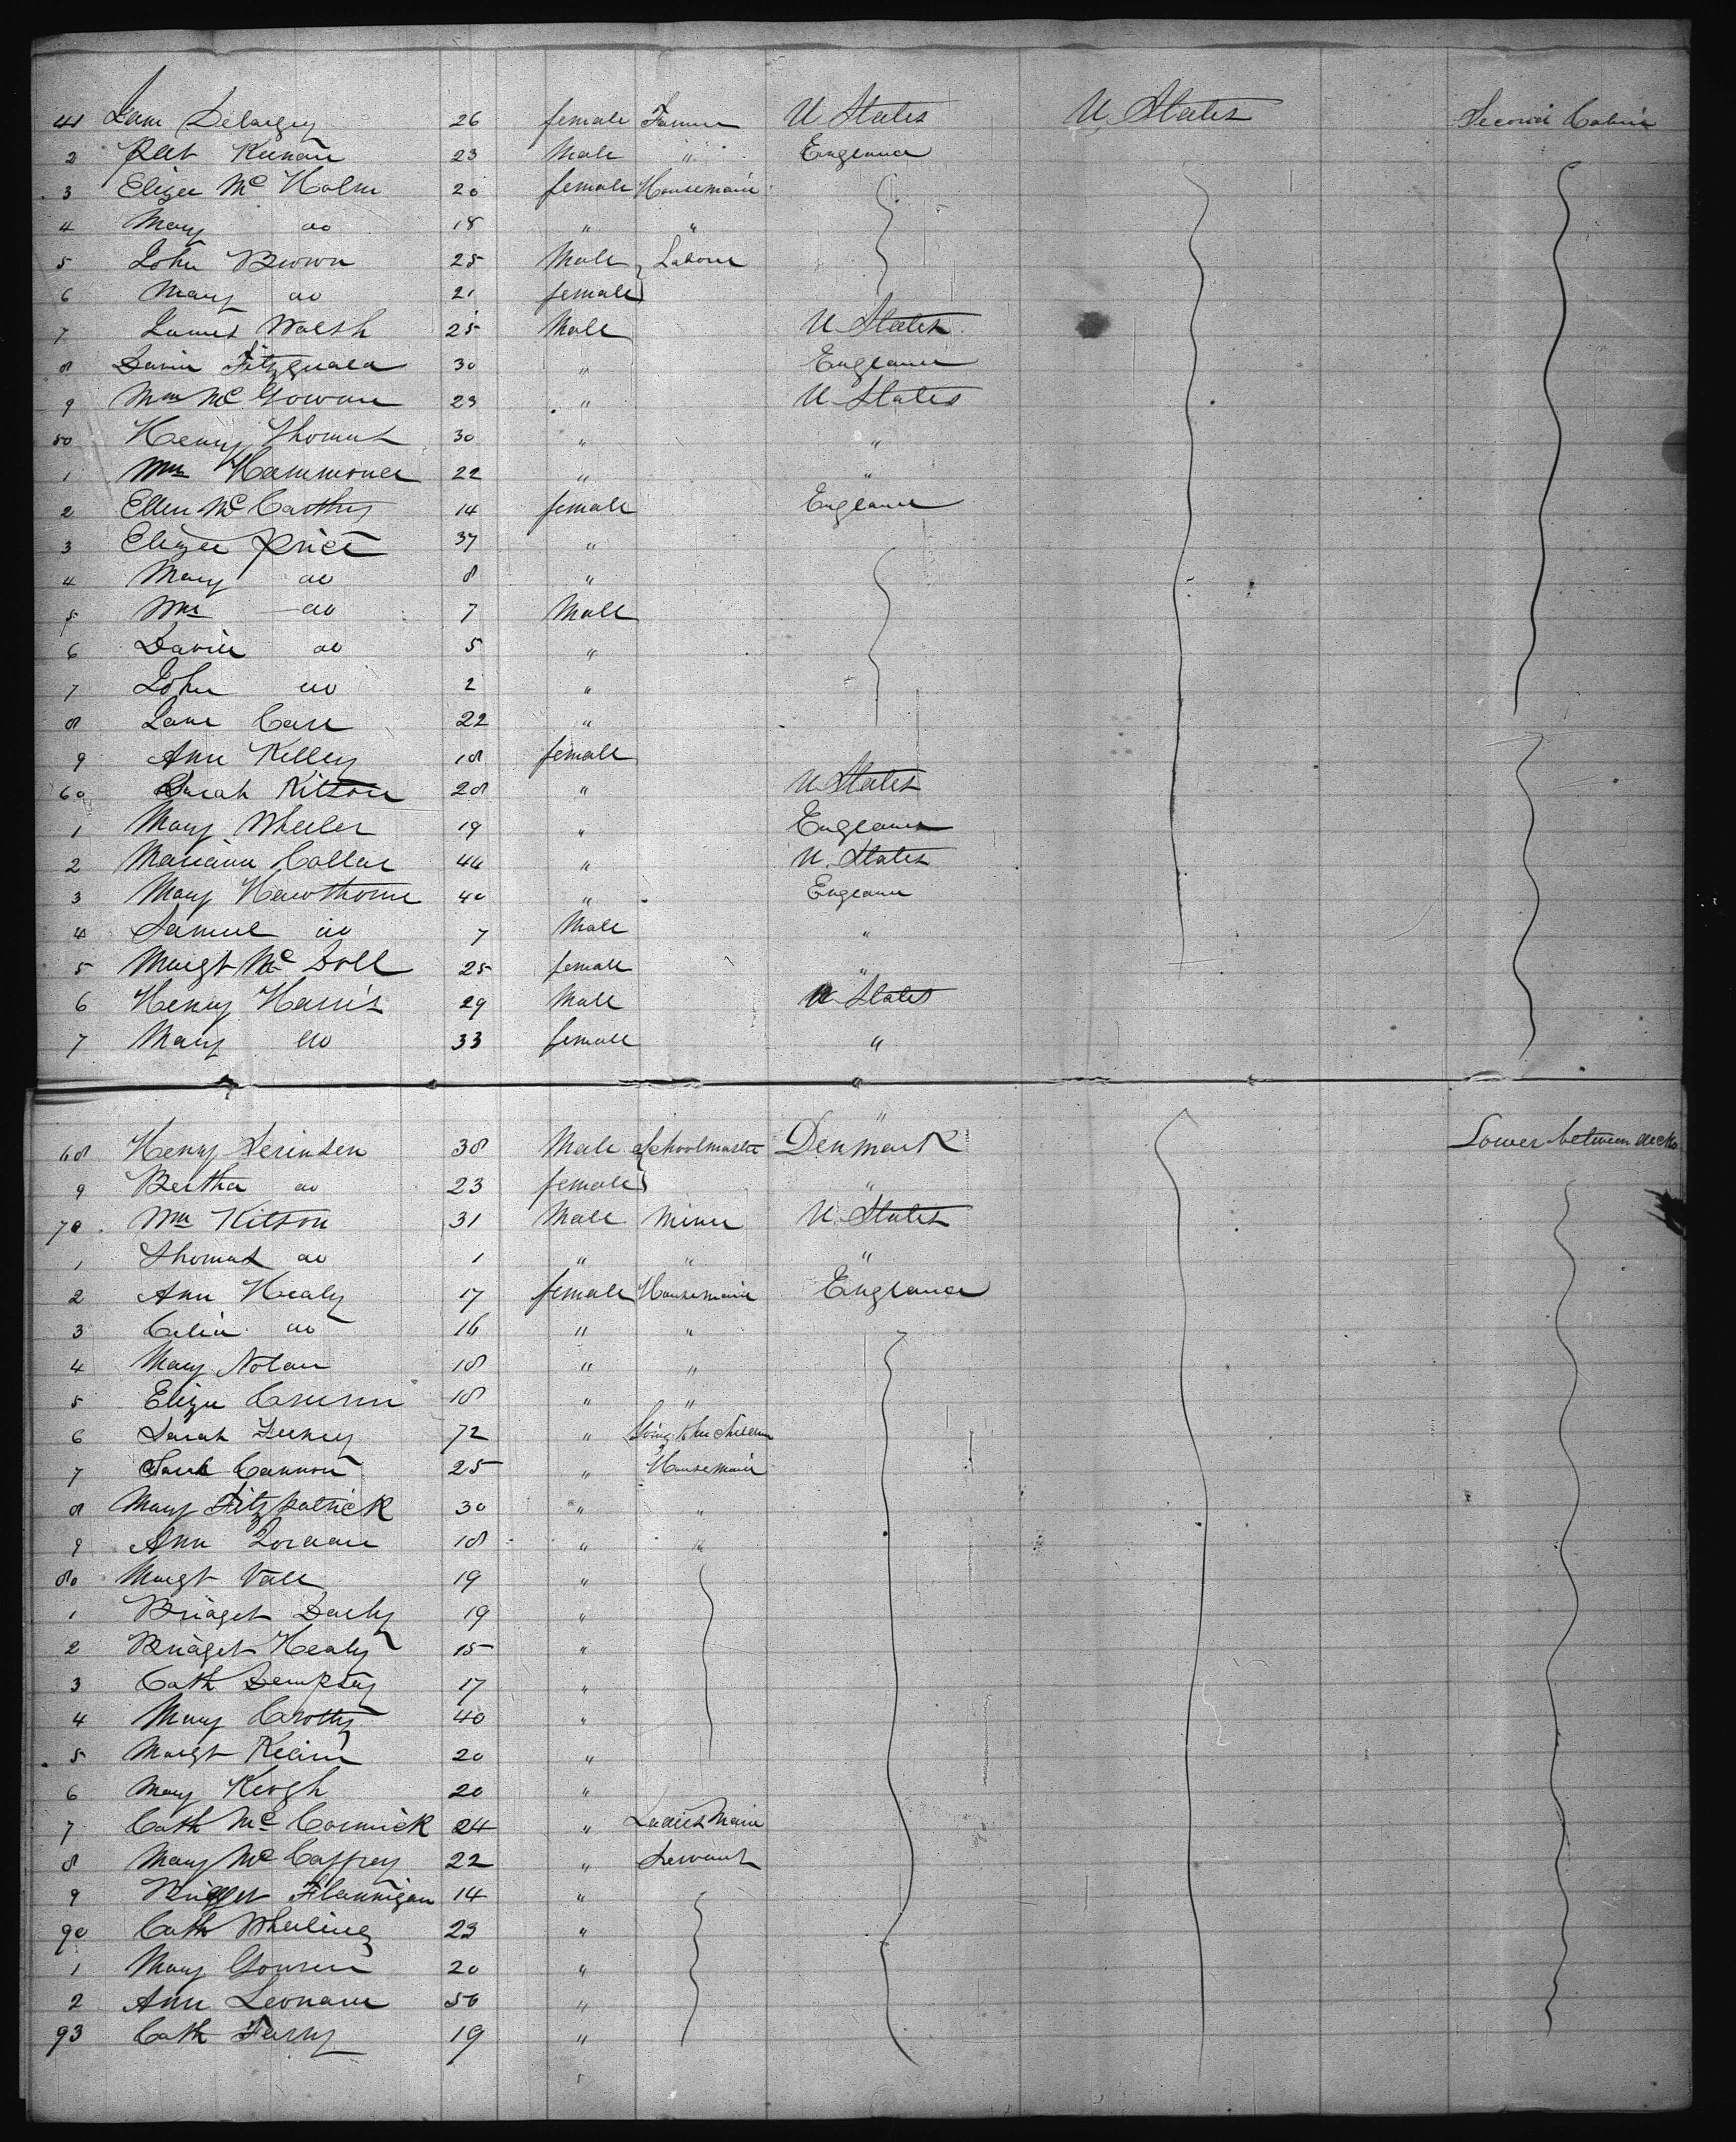 41 Jane Delargey 26 female Farmer U States U. States Second Cabin
2 Pat Keenan 23 Male " England
3 Eliza Mc Holm 20 female Housemaid
4 Mary do 18 " "
5 John Brown 25 Male Labour
6 Mary do 21 female
7 James Walsh 25 Male U States
8 David Fitzgerald 30 " England
9 Wm Mc Gowan 23 " U States
50 Henry Thomas 30 " "
1 Wm Hammond 22 " "
2 Ellen Mc Carthy 14 female England
3 Eliza Price 37 "
4 Mary do 8 "
5 Wm do 7 Male
6 David do 5 "
7 John do 2 "
8 Jane Carr 22 "
9 Ann Kelley 18 female
60 Sarah Kitson 28 " U States
1 Mary Wheeler 19 " England
2 Mariann Collar 44 " U. States
3 Mary Hawthorne 40 " England
4 Samuel do 7 Male "
5 Margt Mc Doll 25 female "
6 Henry Harris 29 Male U States
7 Mary do 33 female "
68 Henry 38 Male Schoolmaster Denmark Lower between decks
9 Bertha do 23 female "
70 Wm Kitson 31 Male Miner U. States
1 Thomas do 1 " " "
2 Ann Healy 17 female Housemaid England
3 Celia do 16 " "
4 Mary Nolan 18 " "
5 Eliza 18 " "
6 Sarah 72 " Going to her Children
7 Sarah Cannon 25 " Housemaid
8 Mary Fitzpatrick 30 " "
9 Ann Jordan 18 " "
80 Margt Vall 19 "
1 Bridget Daly 19 "
2 Bridget Healy 15 "
3 Cath Dempsey 17 "
4 Mary Crotty 40 "
5 Margt 20 "
6 Mary Keogh 20 "
7 Cath Mc Cormick 24 " Ladies Maid
8 Mary Mc Caffrey 22 " Servant
9 Bridget Flannigan 14 "
90 Cath 23 "
1 Mary 20 "
2 Ann Leonard 50 "
93 Cath 19 "